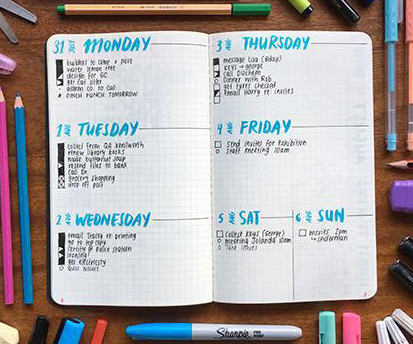 31 MONDAY
builders to come & pave
water lemon tree
design for GC
get cat litter
alarm co. to call
PINCH PUNCH TOMORROW
1 TUESDAY
collect from QA Kenilworth
renew library books
make butternut soup
resend files to bank
call Dr
grocery shopping
drop off post
2 WEDNESDAY
email Tracey re: printing
go to top copy
certify @ police station
ironing!
get electricity
3 THURSDAY
message Lisa (Bday)
KEYS → George
call Duochem
Dinner with Rob
get tyres checked
email Harry re: invites
4 FRIDAY
send invites for exhibition
staff meeting 10am
5 SAT
collect keys (George)
meeting Jolanda 10am
6 SUN
movies 2pm
↳ spiderman
Sharpie